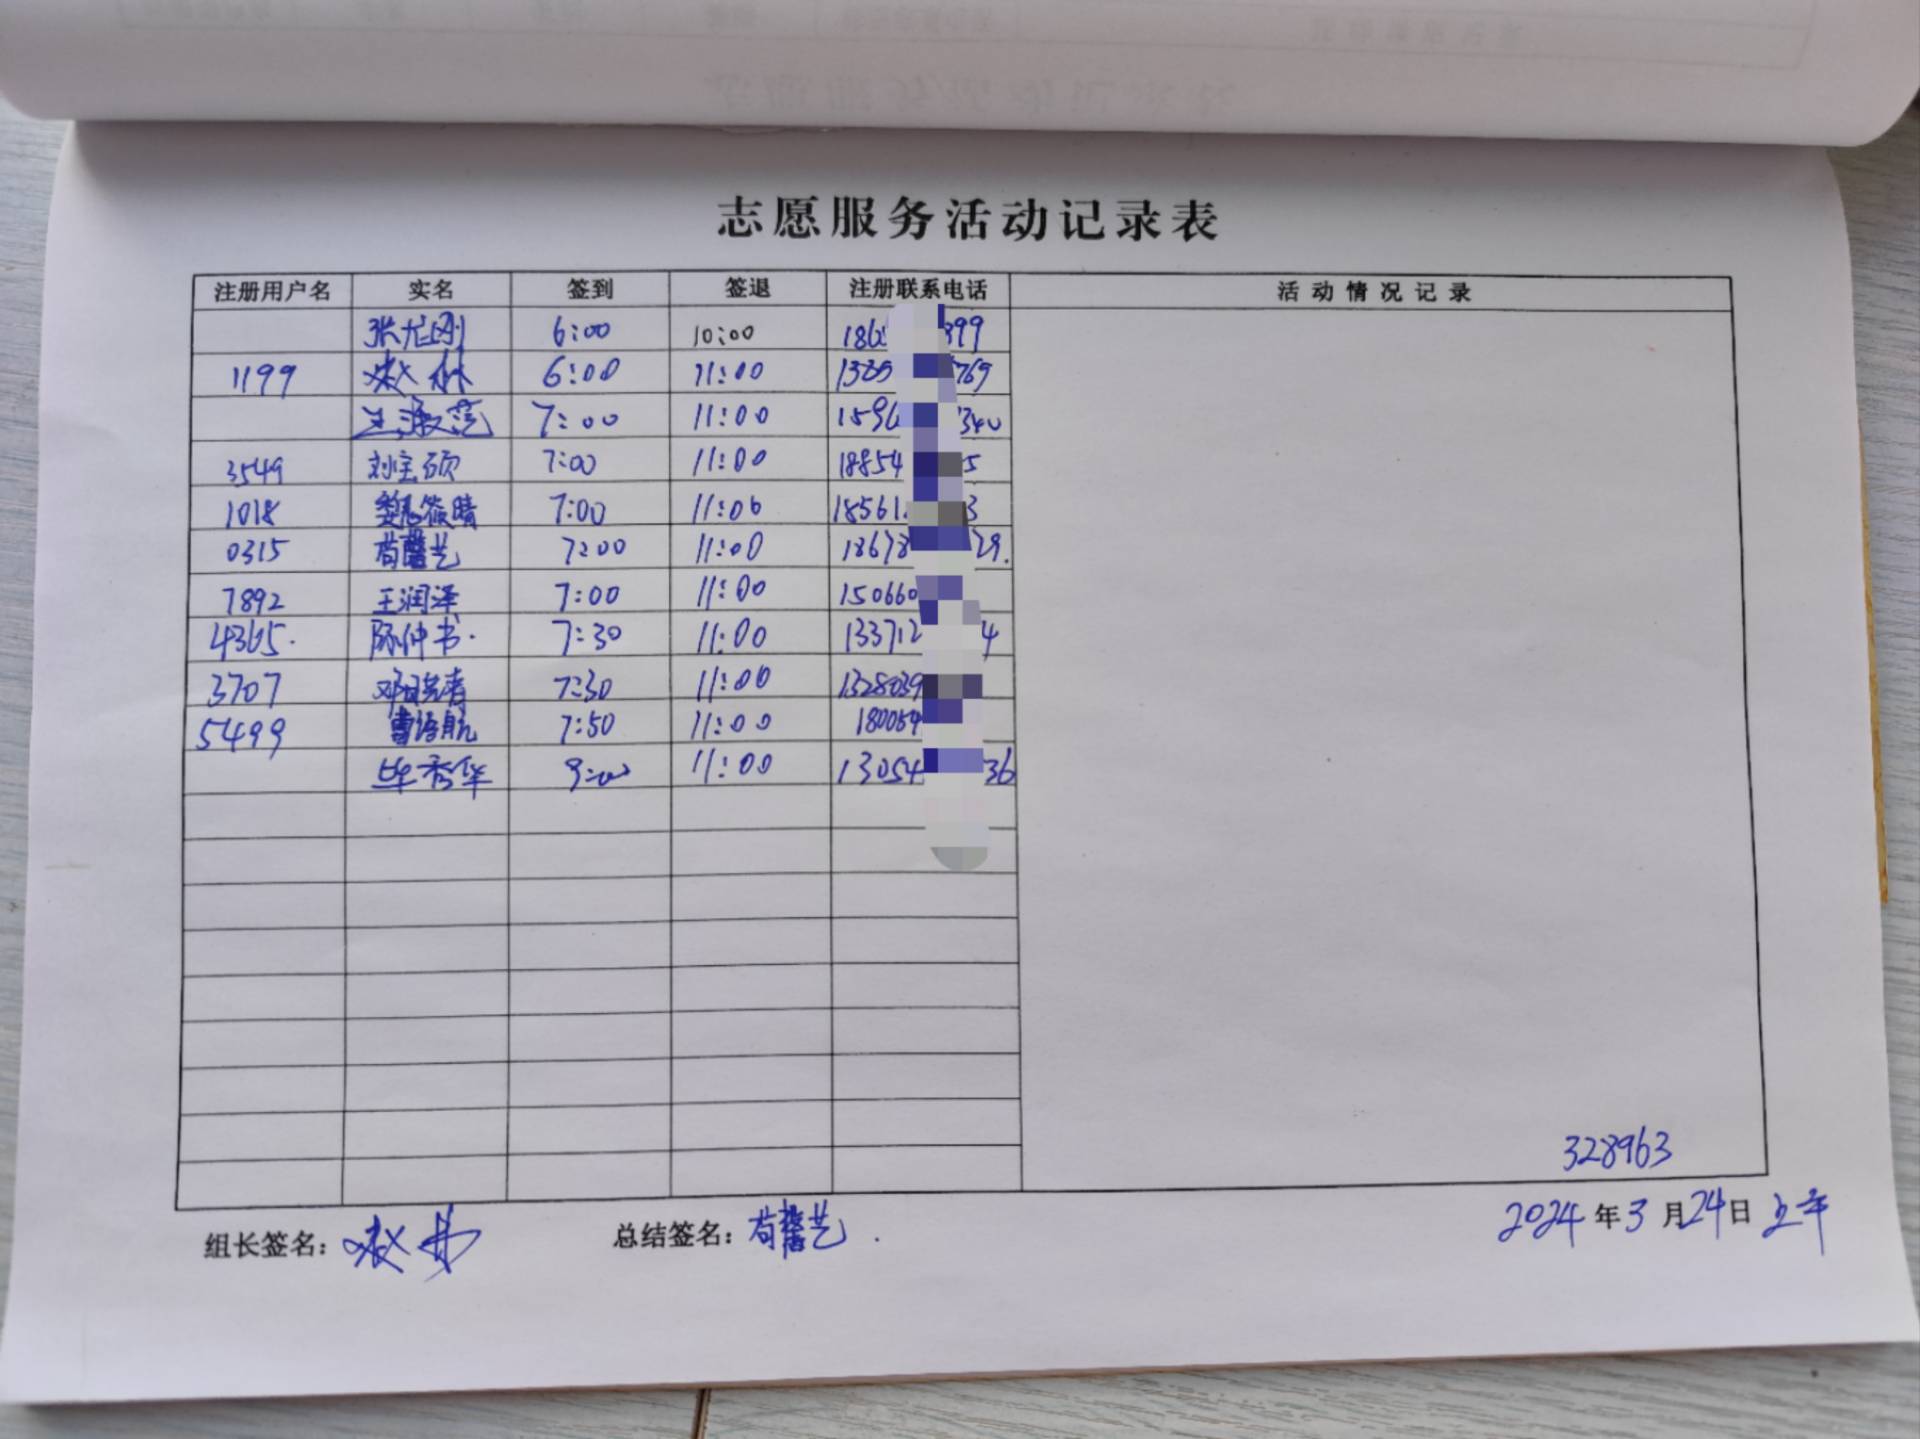 志愿服务活动记录表
注册用户名 实名 签到 签退 注册联系电话 活动情况记录
6:00 10:00 186 899
1199 赵林 6:00 11:00 1325 769
王淑范 7:00 11:00 1596 340
3549 刘宝硕 7:00 11:00 18854 5
1018 魏筱晴 7:00 11:00 18561 3
0315 苟馨艺 7:00 11:00 18678 29.
7892 王润泽 7:00 11:00 150660
4365. 陈仲书. 7:30 11:00 133712 4
3707 7:30 11:00 1328039
5499 曹语航 7:50 11:00 180059
毕秀华 9:00 11:00 13054 36
328963
组长签名: 总结签名: 苟馨艺. 2024年3月24日 上午